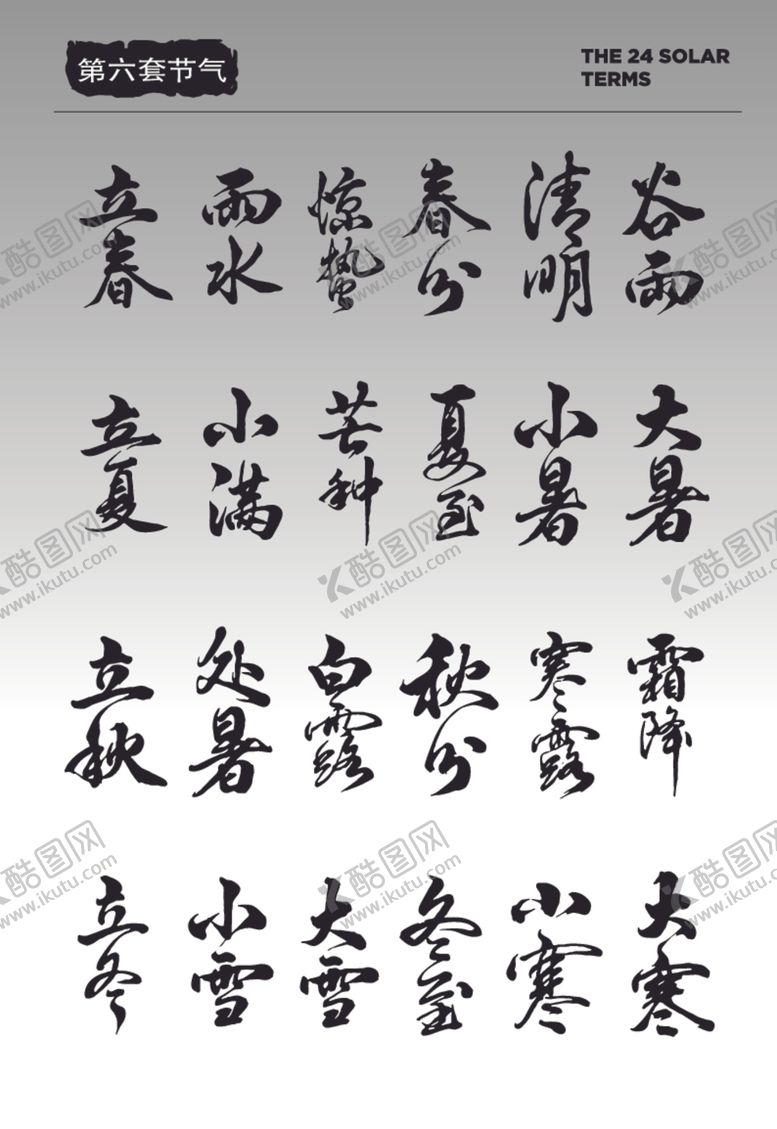 第六套节气
THE 24 SOLAR
TERMS
立春 雨水 惊蛰 春分 清明 谷雨
立夏 小满 芒种 夏至 小暑 大暑
立秋 处暑 白露 秋分 寒露 霜降
立冬 小雪 大雪 冬至 小寒 大寒
酷图网
www.ikutu.com